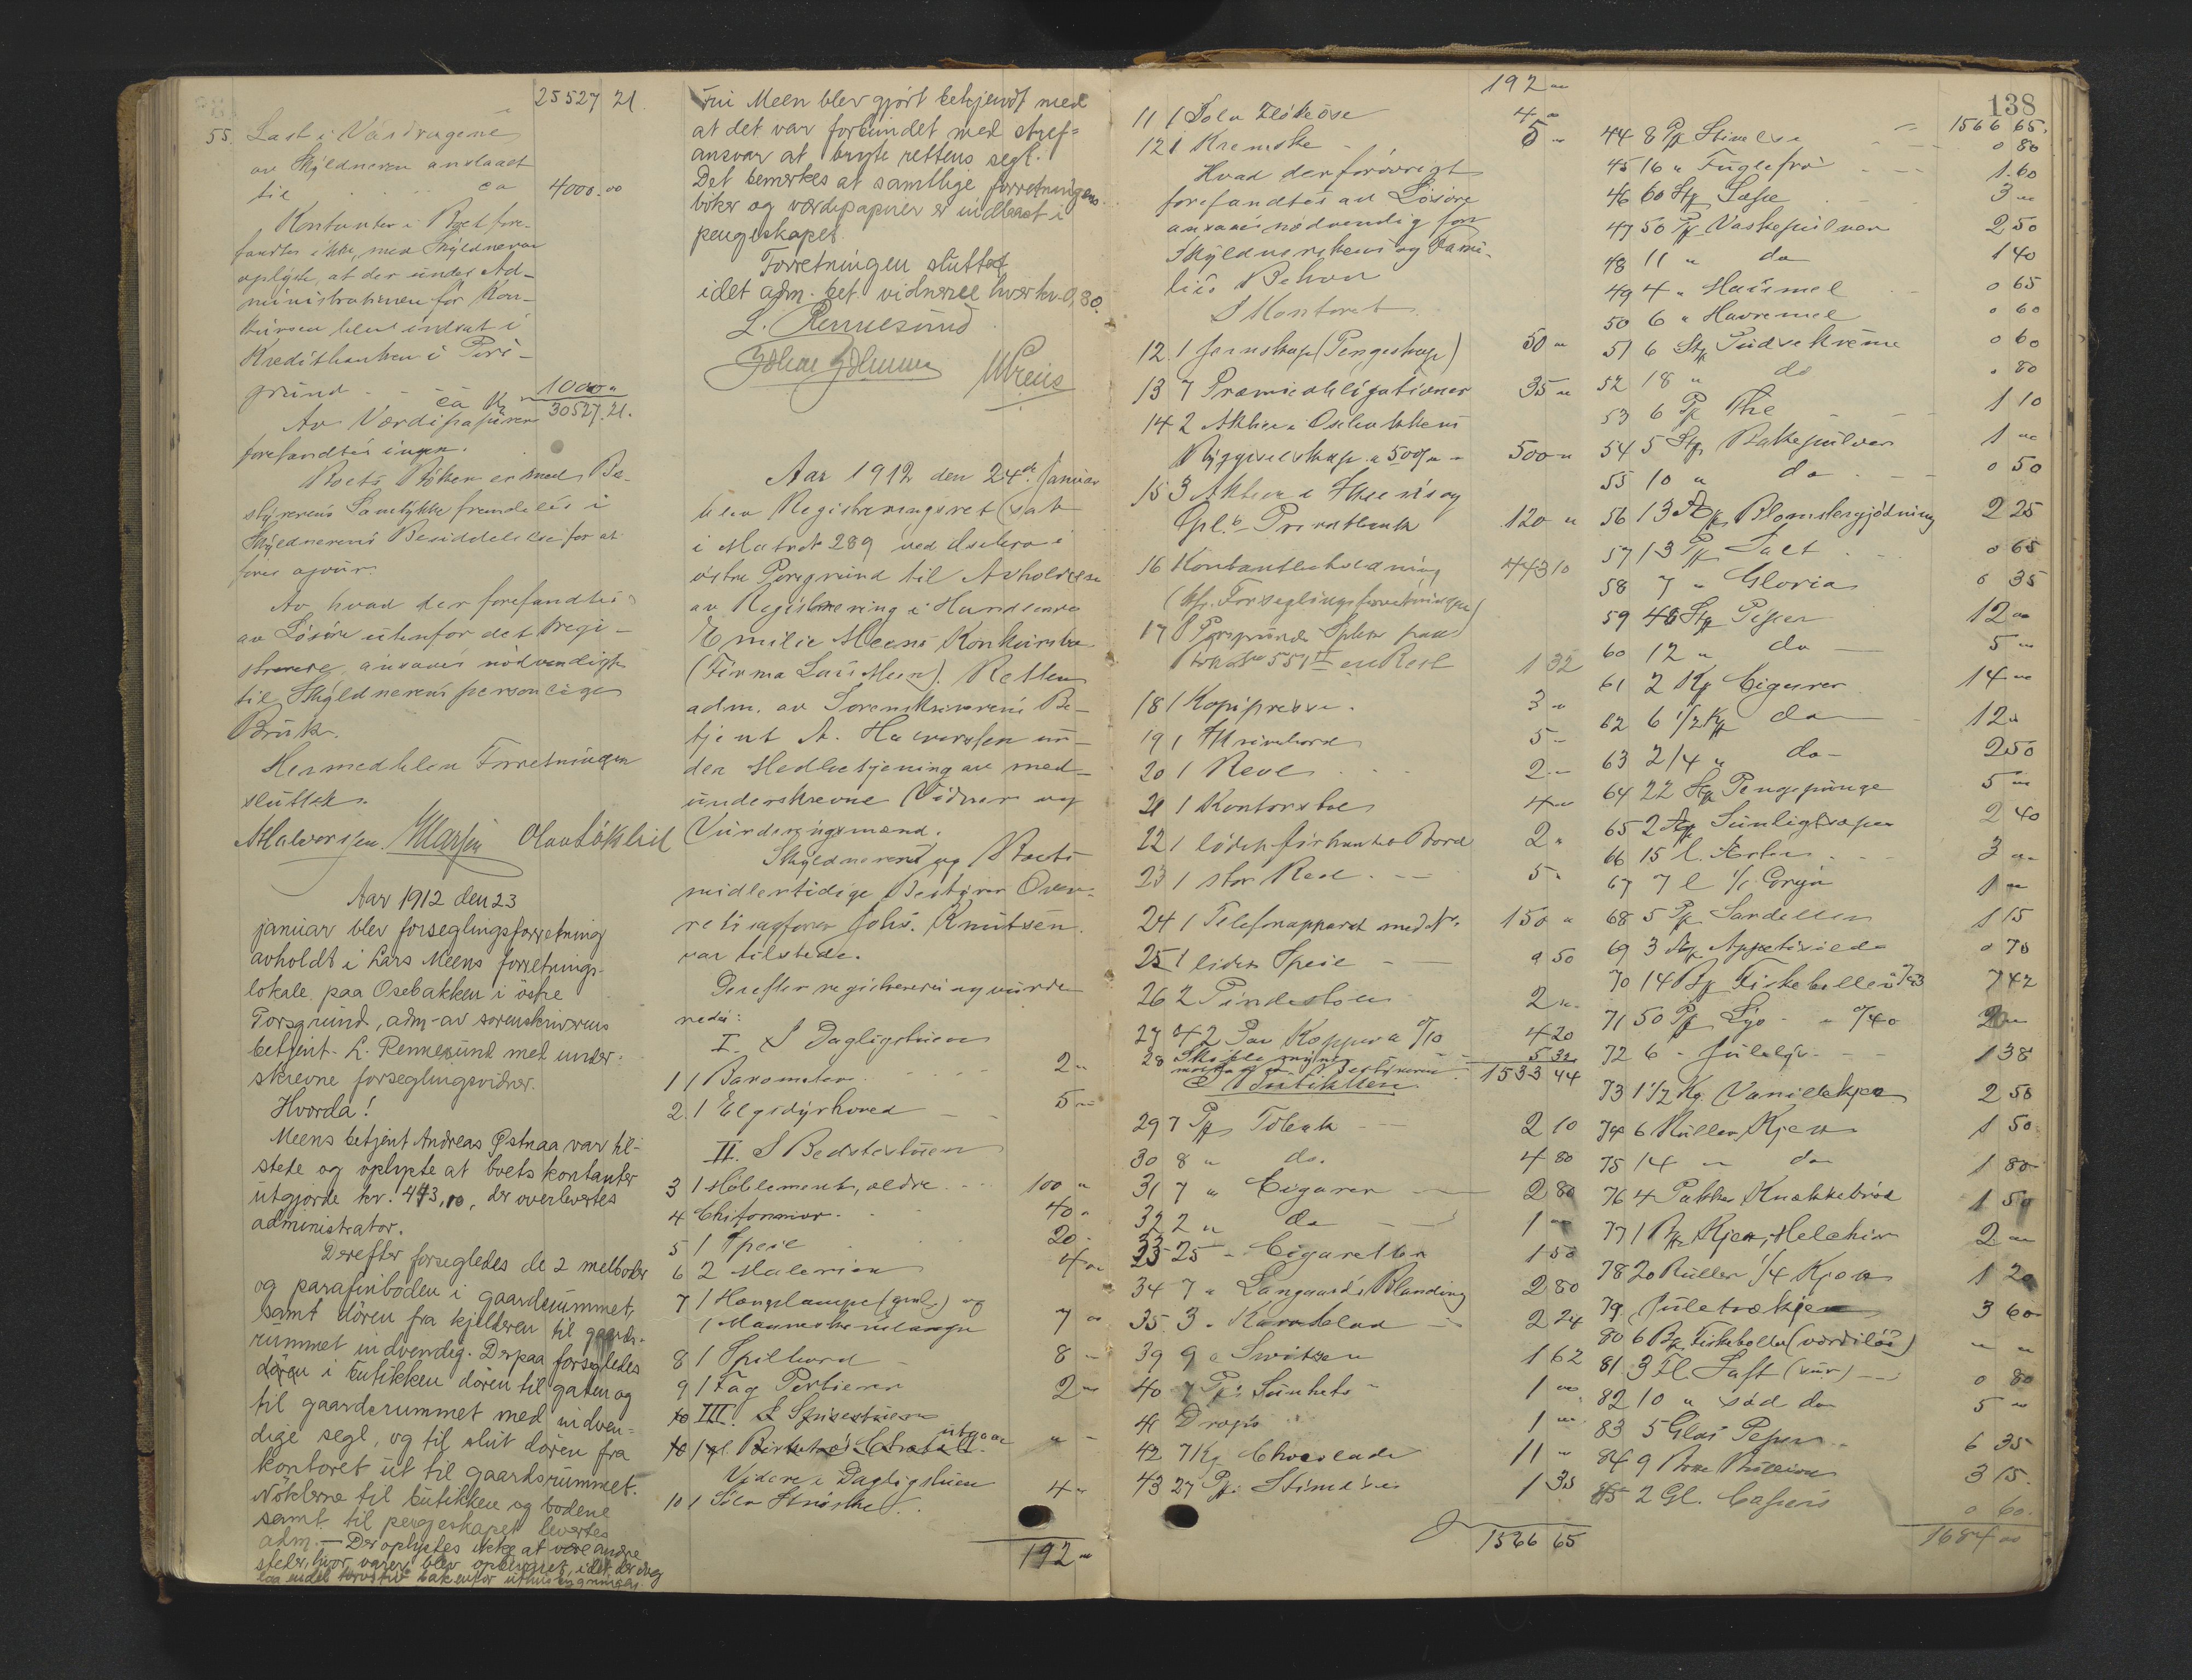 25527 21.
55. Last i
av Skyldneren anslaaet
til ca 4000.00
Kontanter i Boet fore-
fandtes ikke, men Skyldneren
oplyste, at der under Ad-
ministrationen før Kon-
kursen blev indsat i
Kreditbanken i Pors-
grund ca Kr 1000 "
30527.21.
Av Værdipapirer
forefandtes ingen.
Boets Bøker er med Be-
styrerens Samtykke fremdeles i
Skyldnerens Besiddelse for at
føres ajour.
Av hvad der forefandtes
av Løsøre utenfor det regi-
strerte ansaaes nødvendigt
til Skyldnerens personlige
Bruk.
Hermed blev Forretningen
sluttet.
AHalvorsen.
Aar 1912 den 23
januar blev forseglingsforretning
avholdt i Lars Meens forretnings-
lokale paa Osebakken i östre
Porsgrund, adm. av sorenskriverens
betjent L. Rennesund med under-
skrevne forseglingsvidner.
Hvorda!
Meens betjent Andreas Østnaa var til-
stede og oplyste at boets kontanter
utgjorde kr. 443,10, der overlevertes
administrator.
Derefter forsegledes de 2 melboder
og parafinboden i gaardsrummet,
samt dören fra kjelderen til gaards-
rummet indvendig. Derpaa forsegledes
dören i butikken dören til gaten og
til gaardsrummet med indven-
dige segl, og til slut dören fra
kontoret ut til gaardsrummet.
Nöklerne til butikken og bodene
samt til pengeskapet levertes
adm. — Der oplystes ikke at være andre
steder, hvor varer blev opbevaret, idet der dog
laa endel bak
Fru Meen blev gjort bekjendt med
at det var forbundet med straf-
ansvar at bryte rettens segl.
Det bemerkes at samtlige forretningens
böker og værdipapirer er indlaast i
pengeskapet.
Forretningen sluttet
idet adm. bet. vidnerne hver kr. 0,80.
L. Rennesund
Aar 1912 den 24de Januar
blev Registreringsret sat
i Matr No 289 ved Osebro i
østre Porsgrund til Avholdelse
av Registrering i Handlende
Emilie Meens Konkursbo
(Firma Lars Meen). Retten
adm. av Sorenskriverens Be-
tjent A. Halvorsen un-
der Medbetjening av med-
underskrevne Vidner og
Vurderingsmænd.
Skyldneren og Boets
midlertidige Bestyrer Over-
retssagfører Johs. Knutsen
var tilstede.
Derefter registrertes og vurde-
redes:
I. I Dagligstuen
1 1 Barometer 2 "
2 1 Elgsdyrhoved 5 "
II. I Bedstestuen
3 1 Møblement, ældre 100 "
4 Chifonnier 40 "
5 1 Speil 20 "
6 2 Malerier 4 "
7 1 Hængelampe (gml.) og
1 7 "
8 1 Spilbord 8 "
9 1 Fag Portierer 2 "
10 III. I Spisestuen
10 1 gl. utgaar " "
Videre i Dagligstuen
10 1 Sølv 4 "
192 "
192 "
11 1 Sølv Fløteøse 4 "
12 1 Kremske 5 "
Hvad der forøvrigt
forefandtes av Løsøre
ansaaes nødvendig for
Skyldnerskens og Fami-
lies Behov
I Kontoret
12. 1 Jernskap (Pengeskap) 50 "
13 7 Præmieobligationer 35 "
14 2 Aktier i Osebakkens
Byggeselskap a 500 " 500 "
15 3 Aktier i Skiens og
Opl.s Privatbank 120 "
16 Kontantbeholdning 443 10
(kfr. Forseglingsforretningen)
17 Porsgrunds Spb.
551 en Rest 1 32
18 1 Kopipresse 3 "
19 1 Skrivebord 5 "
20 1 Reol 2 "
21 1 Kontorstol 4 "
22 1 lidet firkantet Bord 2 "
23 1 stor Reol 5 "
24 1 Telefonapparat med No. 150 "
25 1 liden Speil 0 50
26 2 Pindestoler 2 "
27 42 Par Kopper a 0/10 4 20
28 5 32
1533 44
I Butikken
29 7 Pk Tobak 2 10
30 8 " do. 4 80
31 7 " Cigarer 2 80
32 2 " do 1 "
33 25 " Cigaretter 1 50
34 7 " Langaards Blanding 2 80
35 3 " Karveblad 2 24
39 9 " Switzer 1 62
40 7 Pk Sunhets- 1 "
41 Drops 1 "
42 7 Kg Chocolade 11 "
43 27 Pk. 1 35
1566 65
138
1566 65.
44 8 Pk Stivelse 0 80
45 16 " Fuglefrø 1.60
46 60 Stk Sæpe 3 "
47 50 Pk Vaskepulver 2 50
48 11 " do 1 40
49 4 " Maismel 0 65
50 6 " Havremel 0 60
51 6 Stk Pudsekreme 0 60
52 18 " do " 80
53 6 Pk The 1 10
54 5 Stk Bakepulver 1 "
55 10 " do 0 50
56 13 Pk Blomstergjødning 2 25
57 13 Pk Salt 0 65
58 7 " Gloria 0 35
59 48 Stk Piper 12 "
60 12 " do 5 "
61 2 Kg Cigarer 14 "
62 6 1/2 Kg do 12 "
63 2/4 " do 2 50
64 22 Stk Pengepunge 5 "
65 2 Sunlightsæpe 2 40
66 15 l. Erter 3 "
67 7 l Gryn 1 "
68 5 Pk Sardeller 1 15
69 3 Appetitsild 0 75
70 14 Bx Fiskeboller a 0/53 7 42
71 50 Pk Lys " 0/40 20 "
72 6 " Julelys 1 38
73 1 1/2 Kg. Vanillekjex 2 50
74 6 Ruller Kjex 1 50
75 14 " do 1 80
76 4 Pakker Knækkebrød 1 50
77 1 Bx Kjex, 2 "
78 20 Ruller 1/4 Kjex 1 20
79 Juletrækjex 3 60
80 6 Bx Fiskeboller (værdiløs) " "
81 3 Fl. Saft (sur) 0 80
82 10 " sød do 5 "
83 5 Glas Peper 6 35
84 9 3 15.
85 2 Gl. Capers 0 60.
1684 00